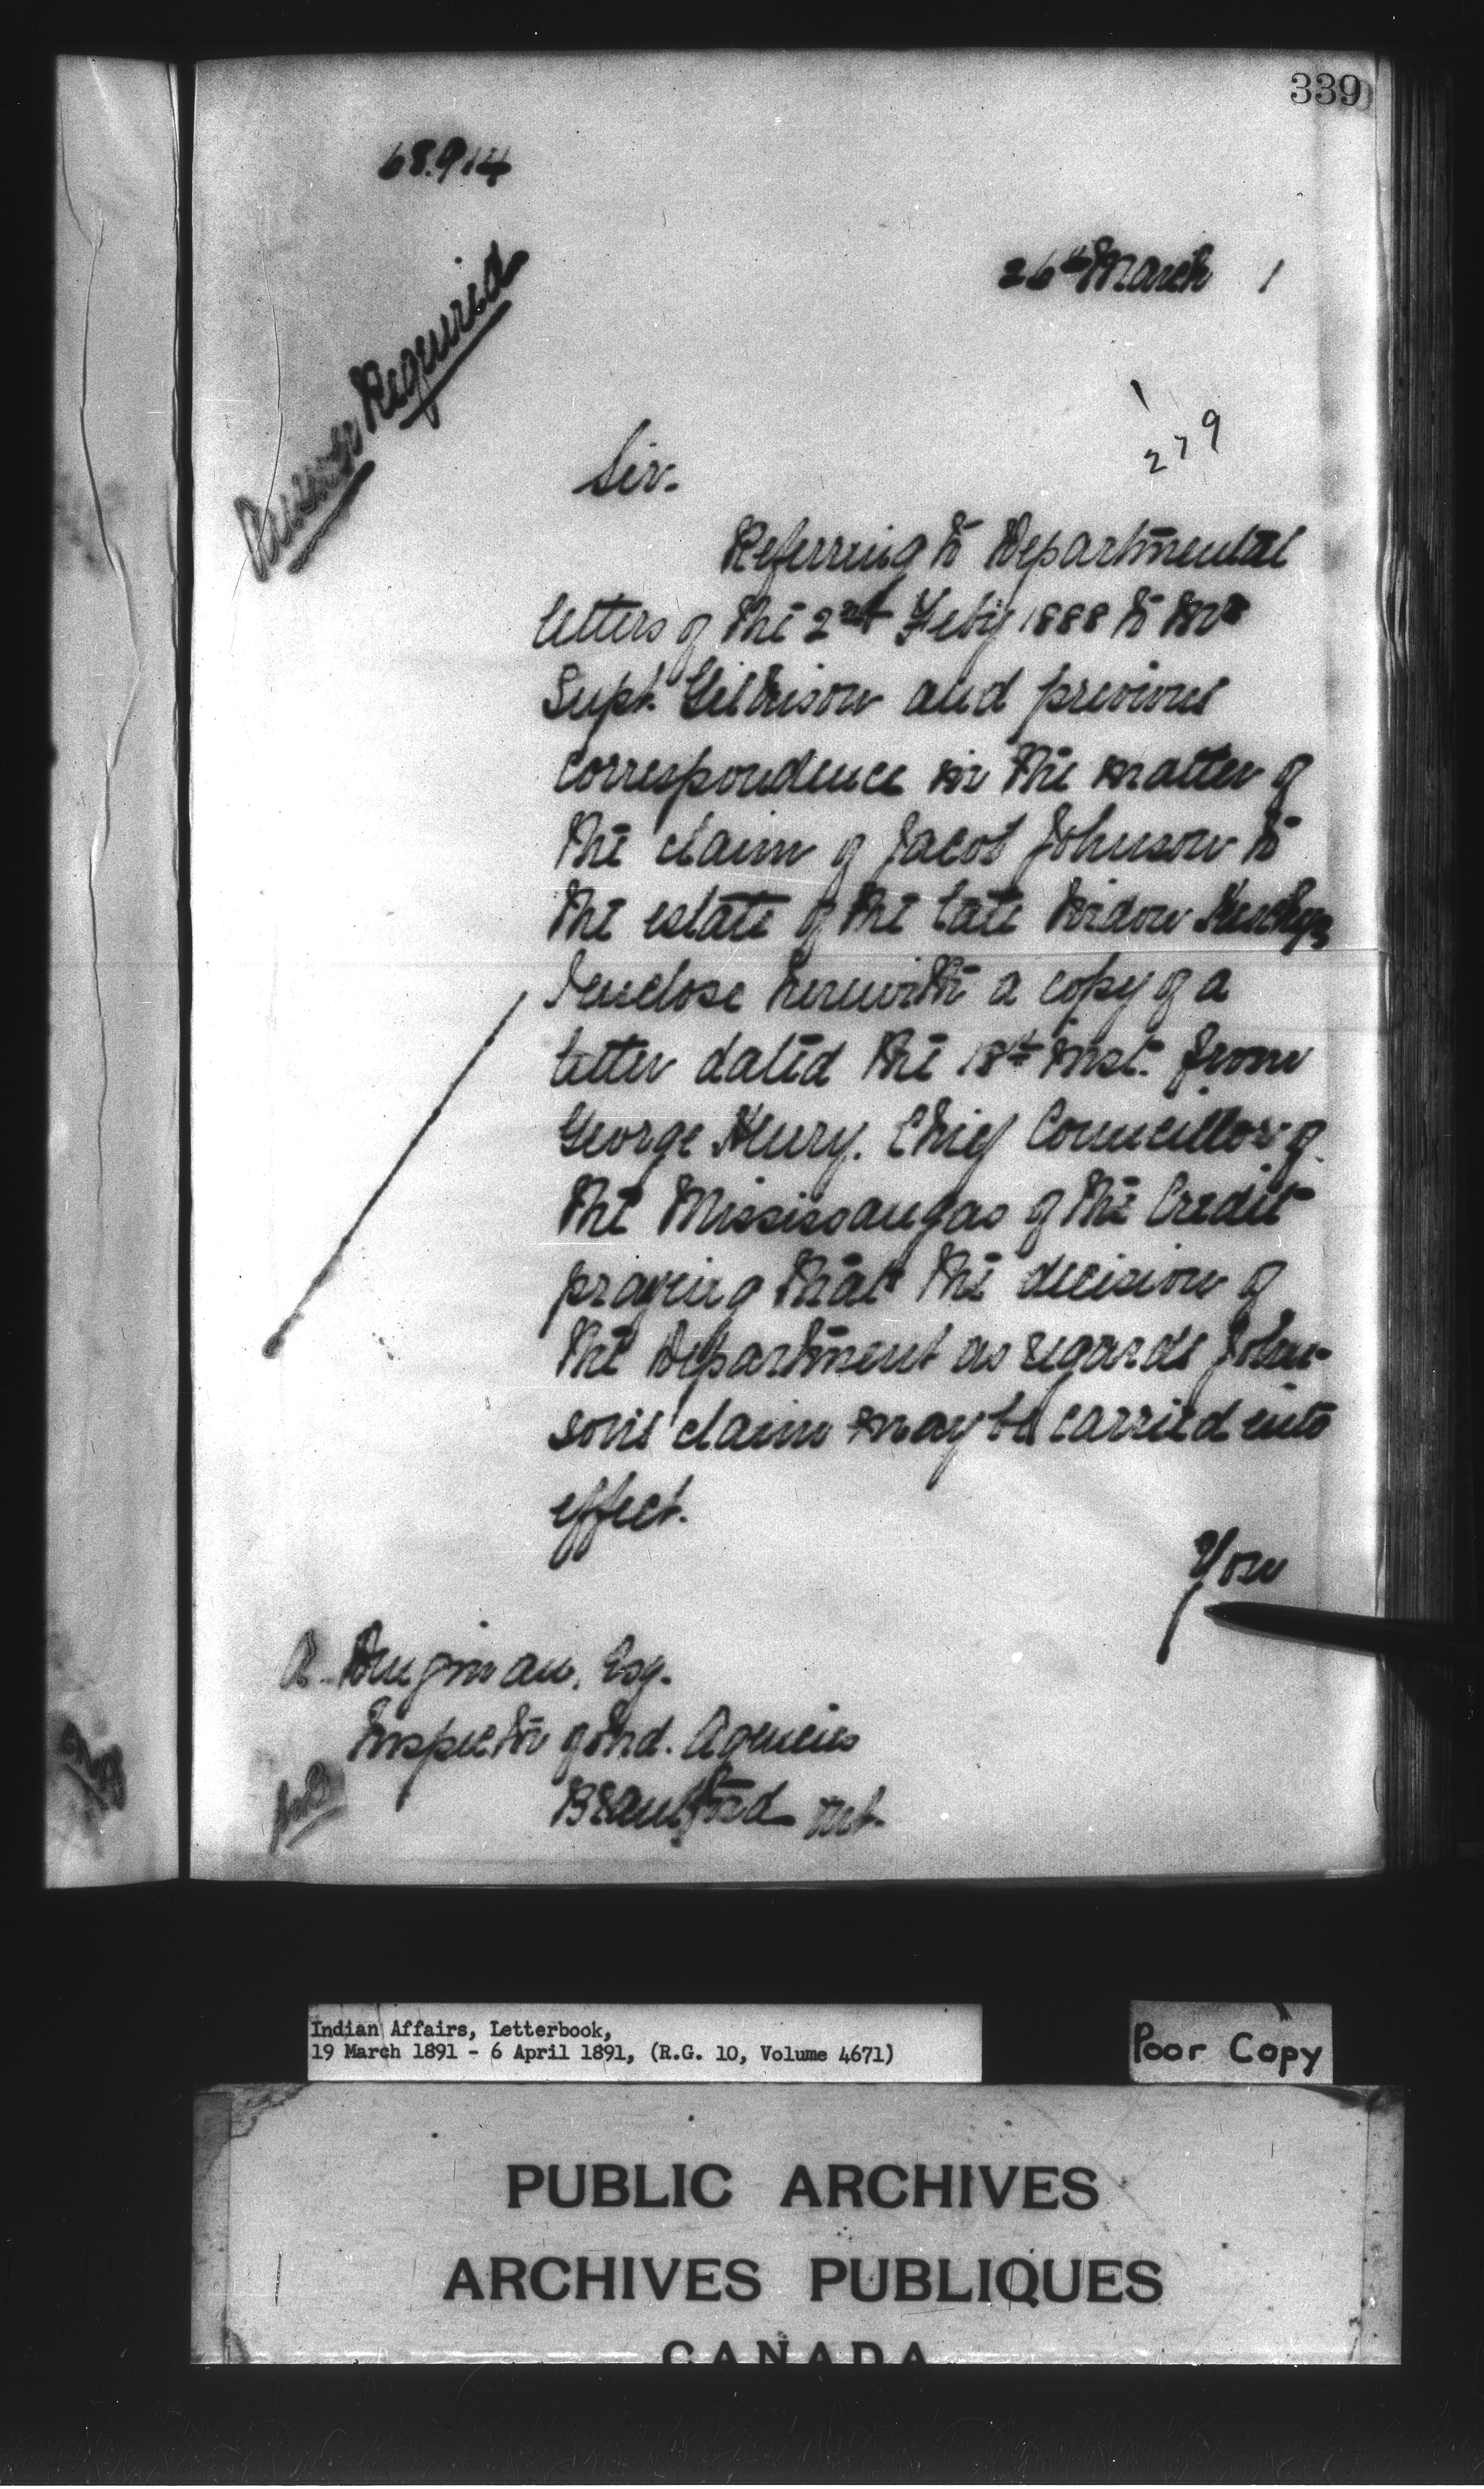 339
68.914
26th March 1
Answer Required
279
Sir.
Referring to Departmental
letters of the 2nd Feby 1888 to Mr
Supt. Gilkison and previous
correspondence in the matter of
the claim of Jacob Johnson to
the estate of the late Widow
I enclose herewith a copy of a
letter dated the 18th inst. from
George Henry. Chief Councillor of
the Mississaugas of the Credit
praying that the decision of
the Department as regards John-
son's claim may be carried into
effect.
You
A. Dingman, Esq.
Inspector of Ind. Agencies
Brantford Ont.
Indian Affairs, Letterbook,
19 March 1891 - 6 April 1891, (R.G. 10, Volume 4671)
Poor Copy
PUBLIC ARCHIVES
ARCHIVES PUBLIQUES
CANADA